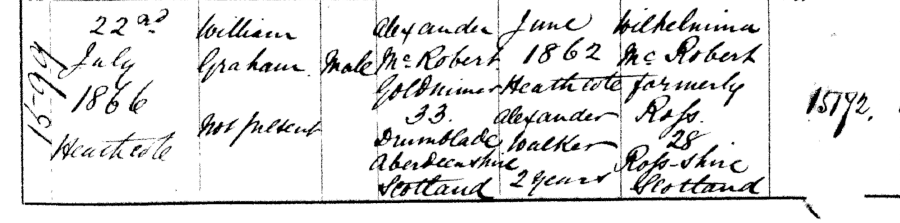 1599
22nd July 1866 Heathcote
William Graham. Not present
Male
Alexander McRobert Goldminer 33. Drumblade Aberdeenshire Scotland
June 1862 Heathcote Alexander Walker 2 years
Wilhelmina McRobert formerly Ross. 28 Ross-shire Scotland